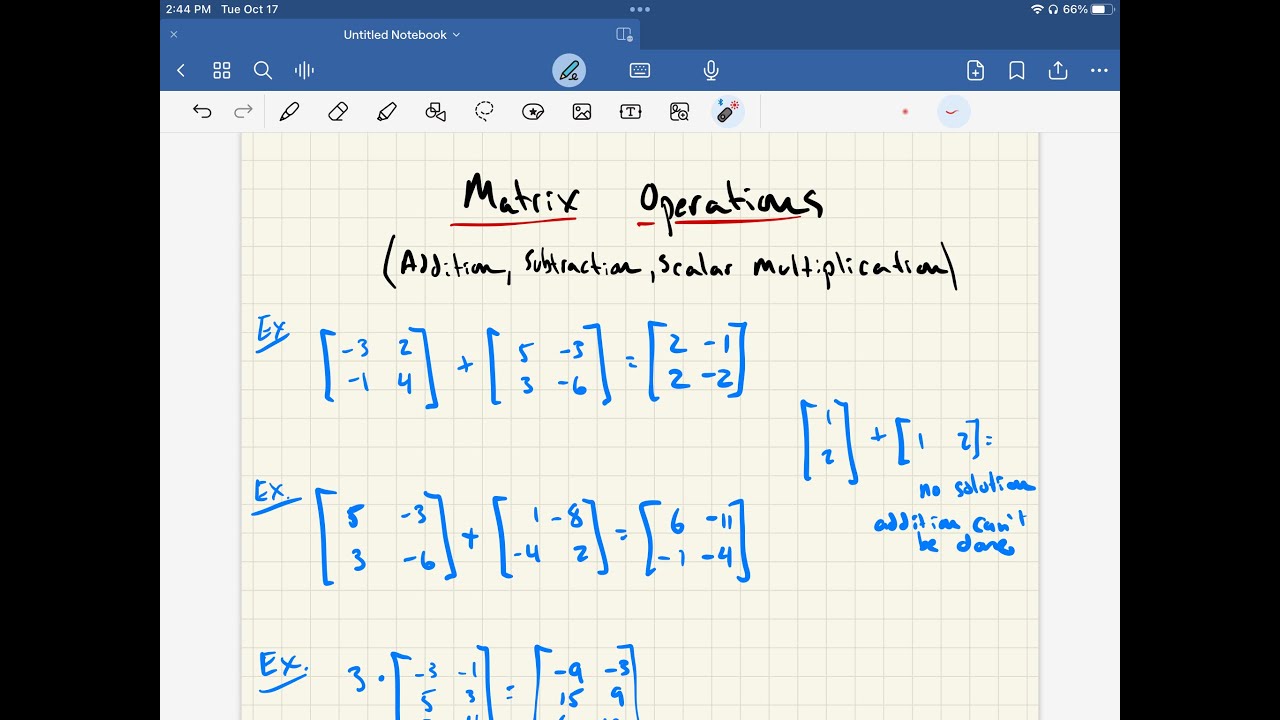 2:44 PM Tue Oct 17
66%
Untitled Notebook
Matrix Operations
(Addition, Subtraction, Scalar Multiplication)
Ex
[-3 2] + [5 -3] = [2 -1]
[-1 4] [3 -6] [2 -2]
[1] + [1 2] =
[2]
no solution
addition can't
be done
Ex.
[5 -3] + [1 -8] = [6 -11]
[3 -6] [-4 2] [-1 -4]
Ex.
3 · [-3 -1] = [-9 -3]
[5 3] [15 9]